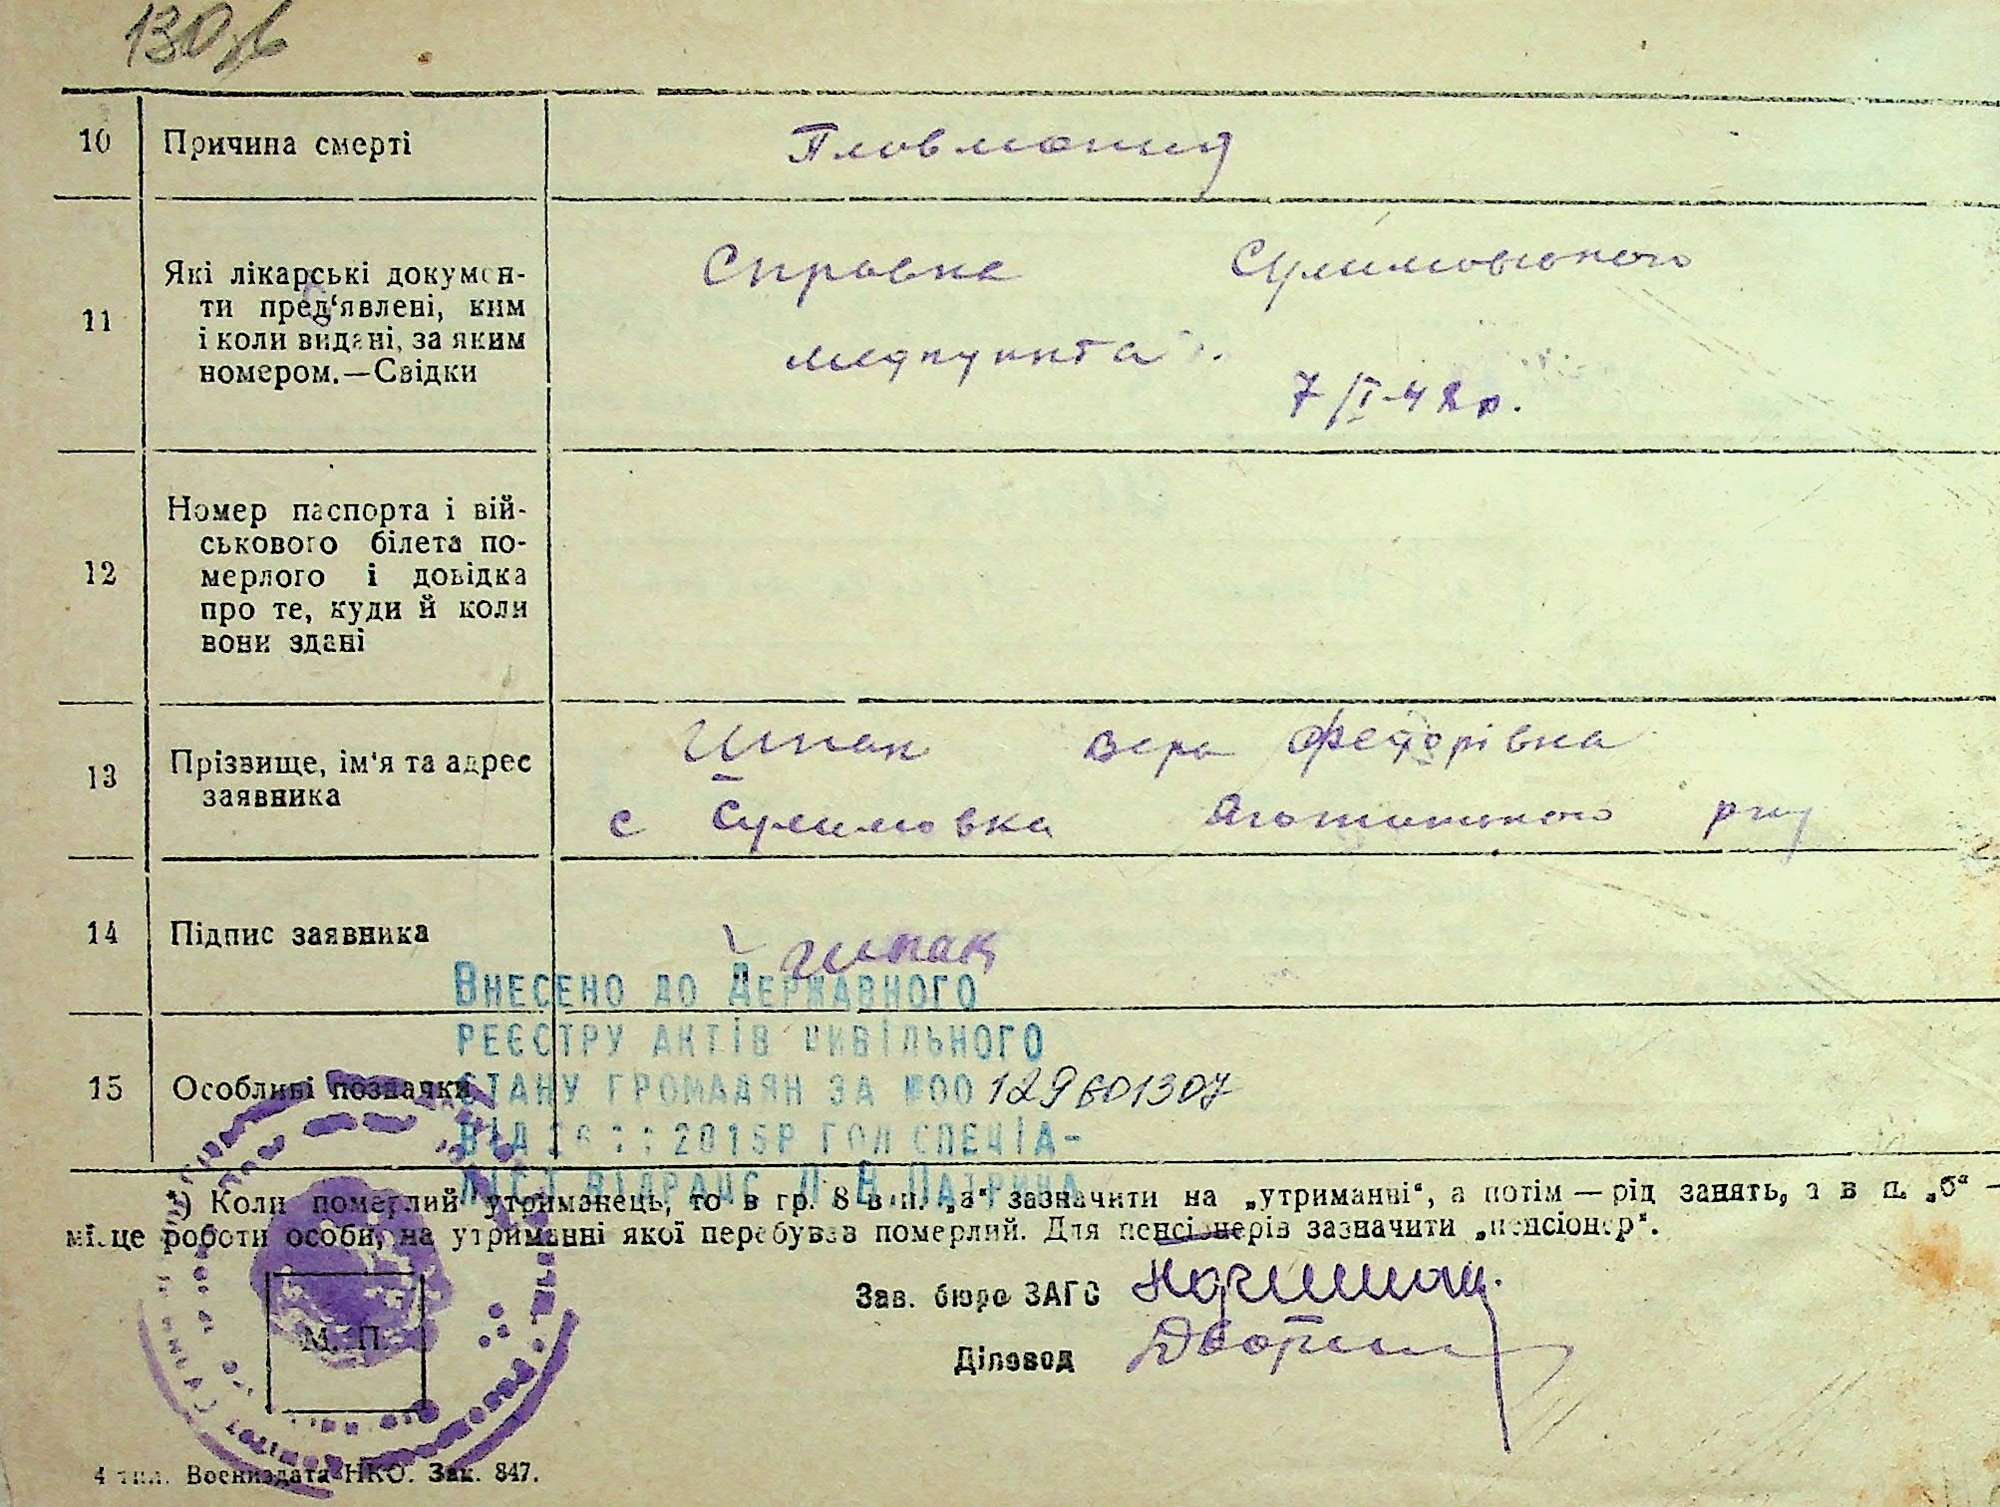 130
10 Причина смерті Пловмония
11 Які лікарські докумен-
ти пред'явлені, ким
і коли видані, за яким
номером.—Свідки
Справка Сулимовского
медпункта.
7/I-48р.
12 Номер паспорта і вій-
ськового білета по-
мерлого і довідка
про те, куди й коли
вони здані
13 Прізвище, ім'я та адрес
заявника
Шпак Вера Федорівна
с Сулимовка Яготинского р-ну
14 Підпис заявника Шпак
Внесено до Державного
реєстру актів цивільного
15 Особливі позначки
стану громадян за №00129601307
від 2015р гол спеціа-
ліст відрацс Л В Патрина
*) Коли померлий утриманець, то в гр. 8 в п. „а“ зазначити на „утриманні“, а потім — рід занять, а в п. „б“ —
місце роботи особи, на утриманні якої перебував померлий. Для пенсіонерів зазначити „пенсіонер“.
Зав. бюро ЗАГС
Діловод
М. П.
4 тип. Воениздата НКО. Зак. 847.